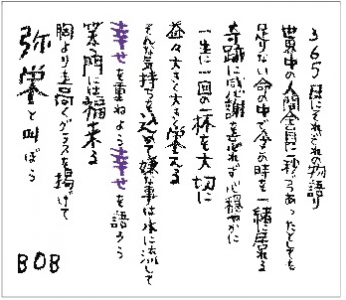 365日にそれぞれの物語り
世界中の人間全員に一秒づつあったとしても
足りない命の中で今この時を一緒に居れる
奇跡に感謝を忘れず心穏やかに
一生に一回の一杯を大切に
益々大きく大きく栄える
そんな気持ちを込め嫌な事は水に流して
幸せを重ねよう幸せを語ろう
笑う門には福来る
胸より高くグラスを掲げて
弥栄と叫ぼう
BOB